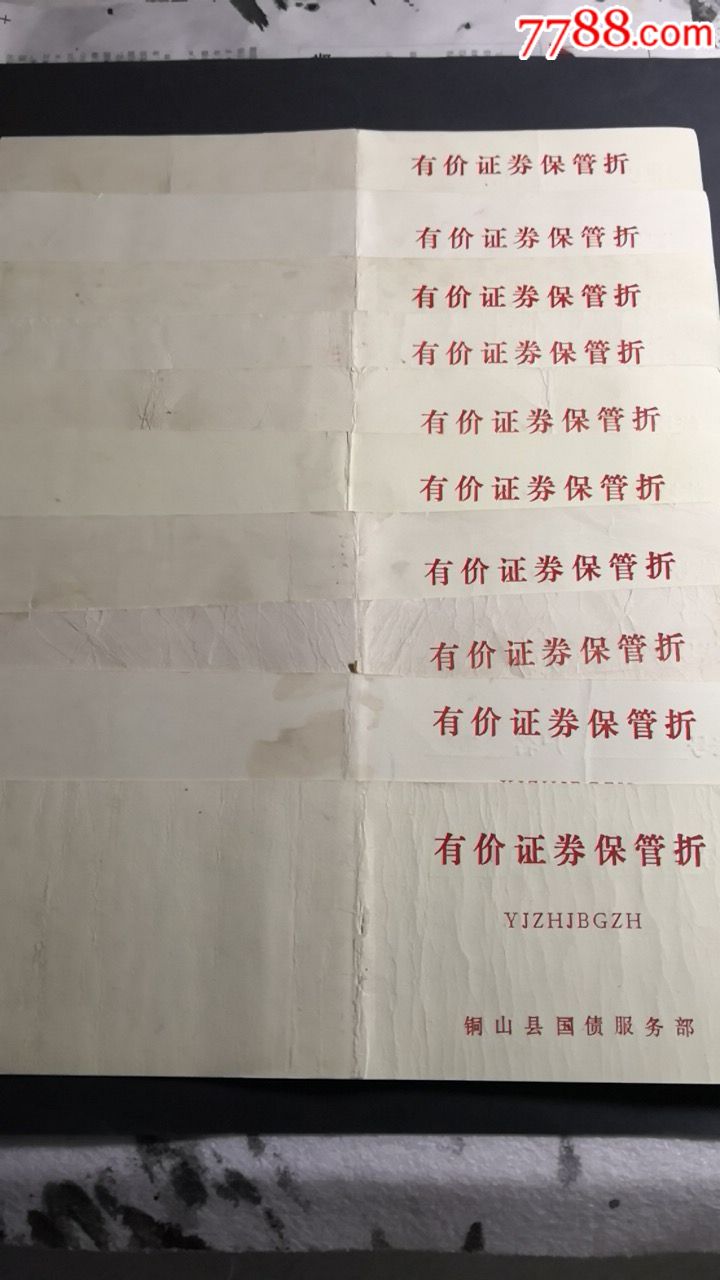 7788.com
有价证券保管折
有价证券保管折
有价证券保管折
有价证券保管折
有价证券保管折
有价证券保管折
有价证券保管折
有价证券保管折
有价证券保管折
有价证券保管折
YJZHJBGZH
铜山县国债服务部